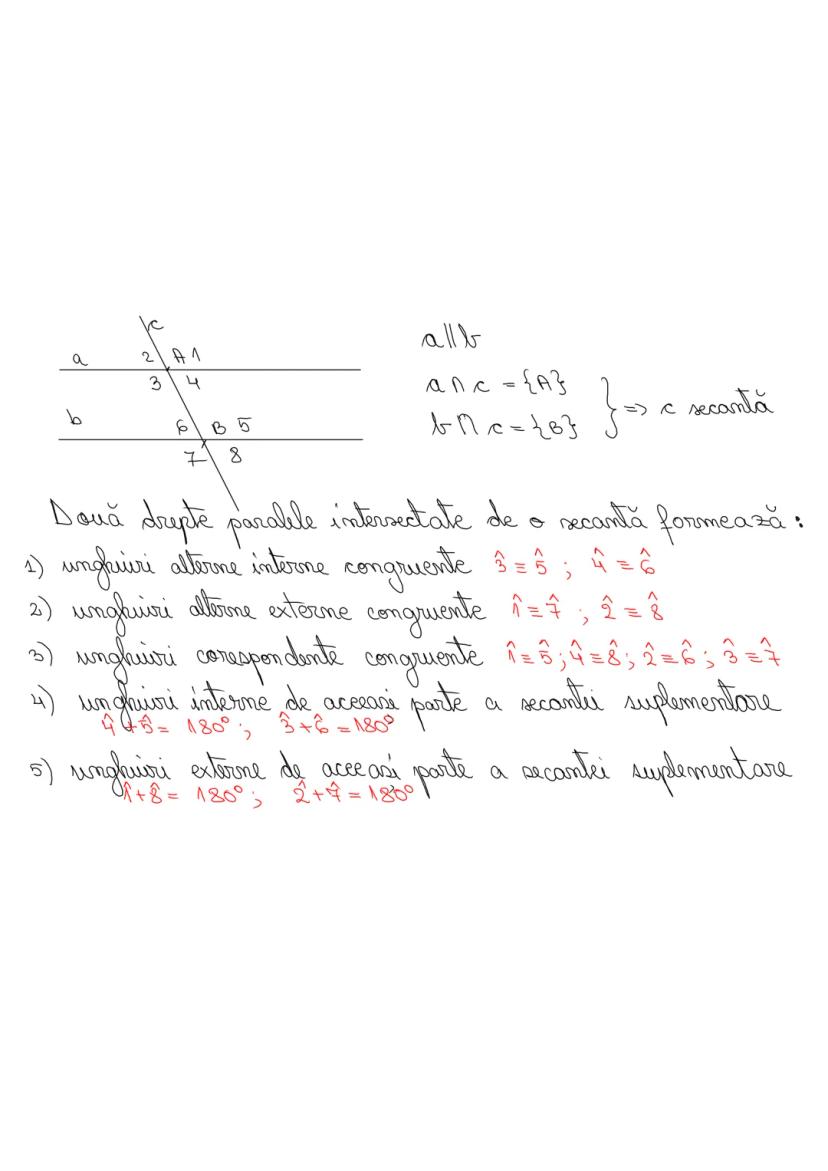 c
a 2 A 1
3 4
b 6 B 5
7 8
a∥b
a∩c = {A}
b∩c = {B}
} => c secantă
Două drepte paralele intersectate de o secantă formează:
1) unghiuri alterne interne congruente 3̂ ≡ 5̂ ; 4̂ ≡ 6̂
2) unghiuri alterne externe congruente 1̂ ≡ 7̂ ; 2̂ ≡ 8̂
3) unghiuri corespondente congruente 1̂ ≡ 5̂ ; 4̂ ≡ 8̂ ; 2̂ ≡ 6̂ ; 3̂ ≡ 7̂
4) unghiuri interne de aceeasi parte a secantei suplementare
4̂ + 5̂ = 180° ; 3̂ + 6̂ = 180°
5) unghiuri externe de aceeasi parte a secantei suplementare
1̂ + 8̂ = 180° ; 2̂ + 7̂ = 180°